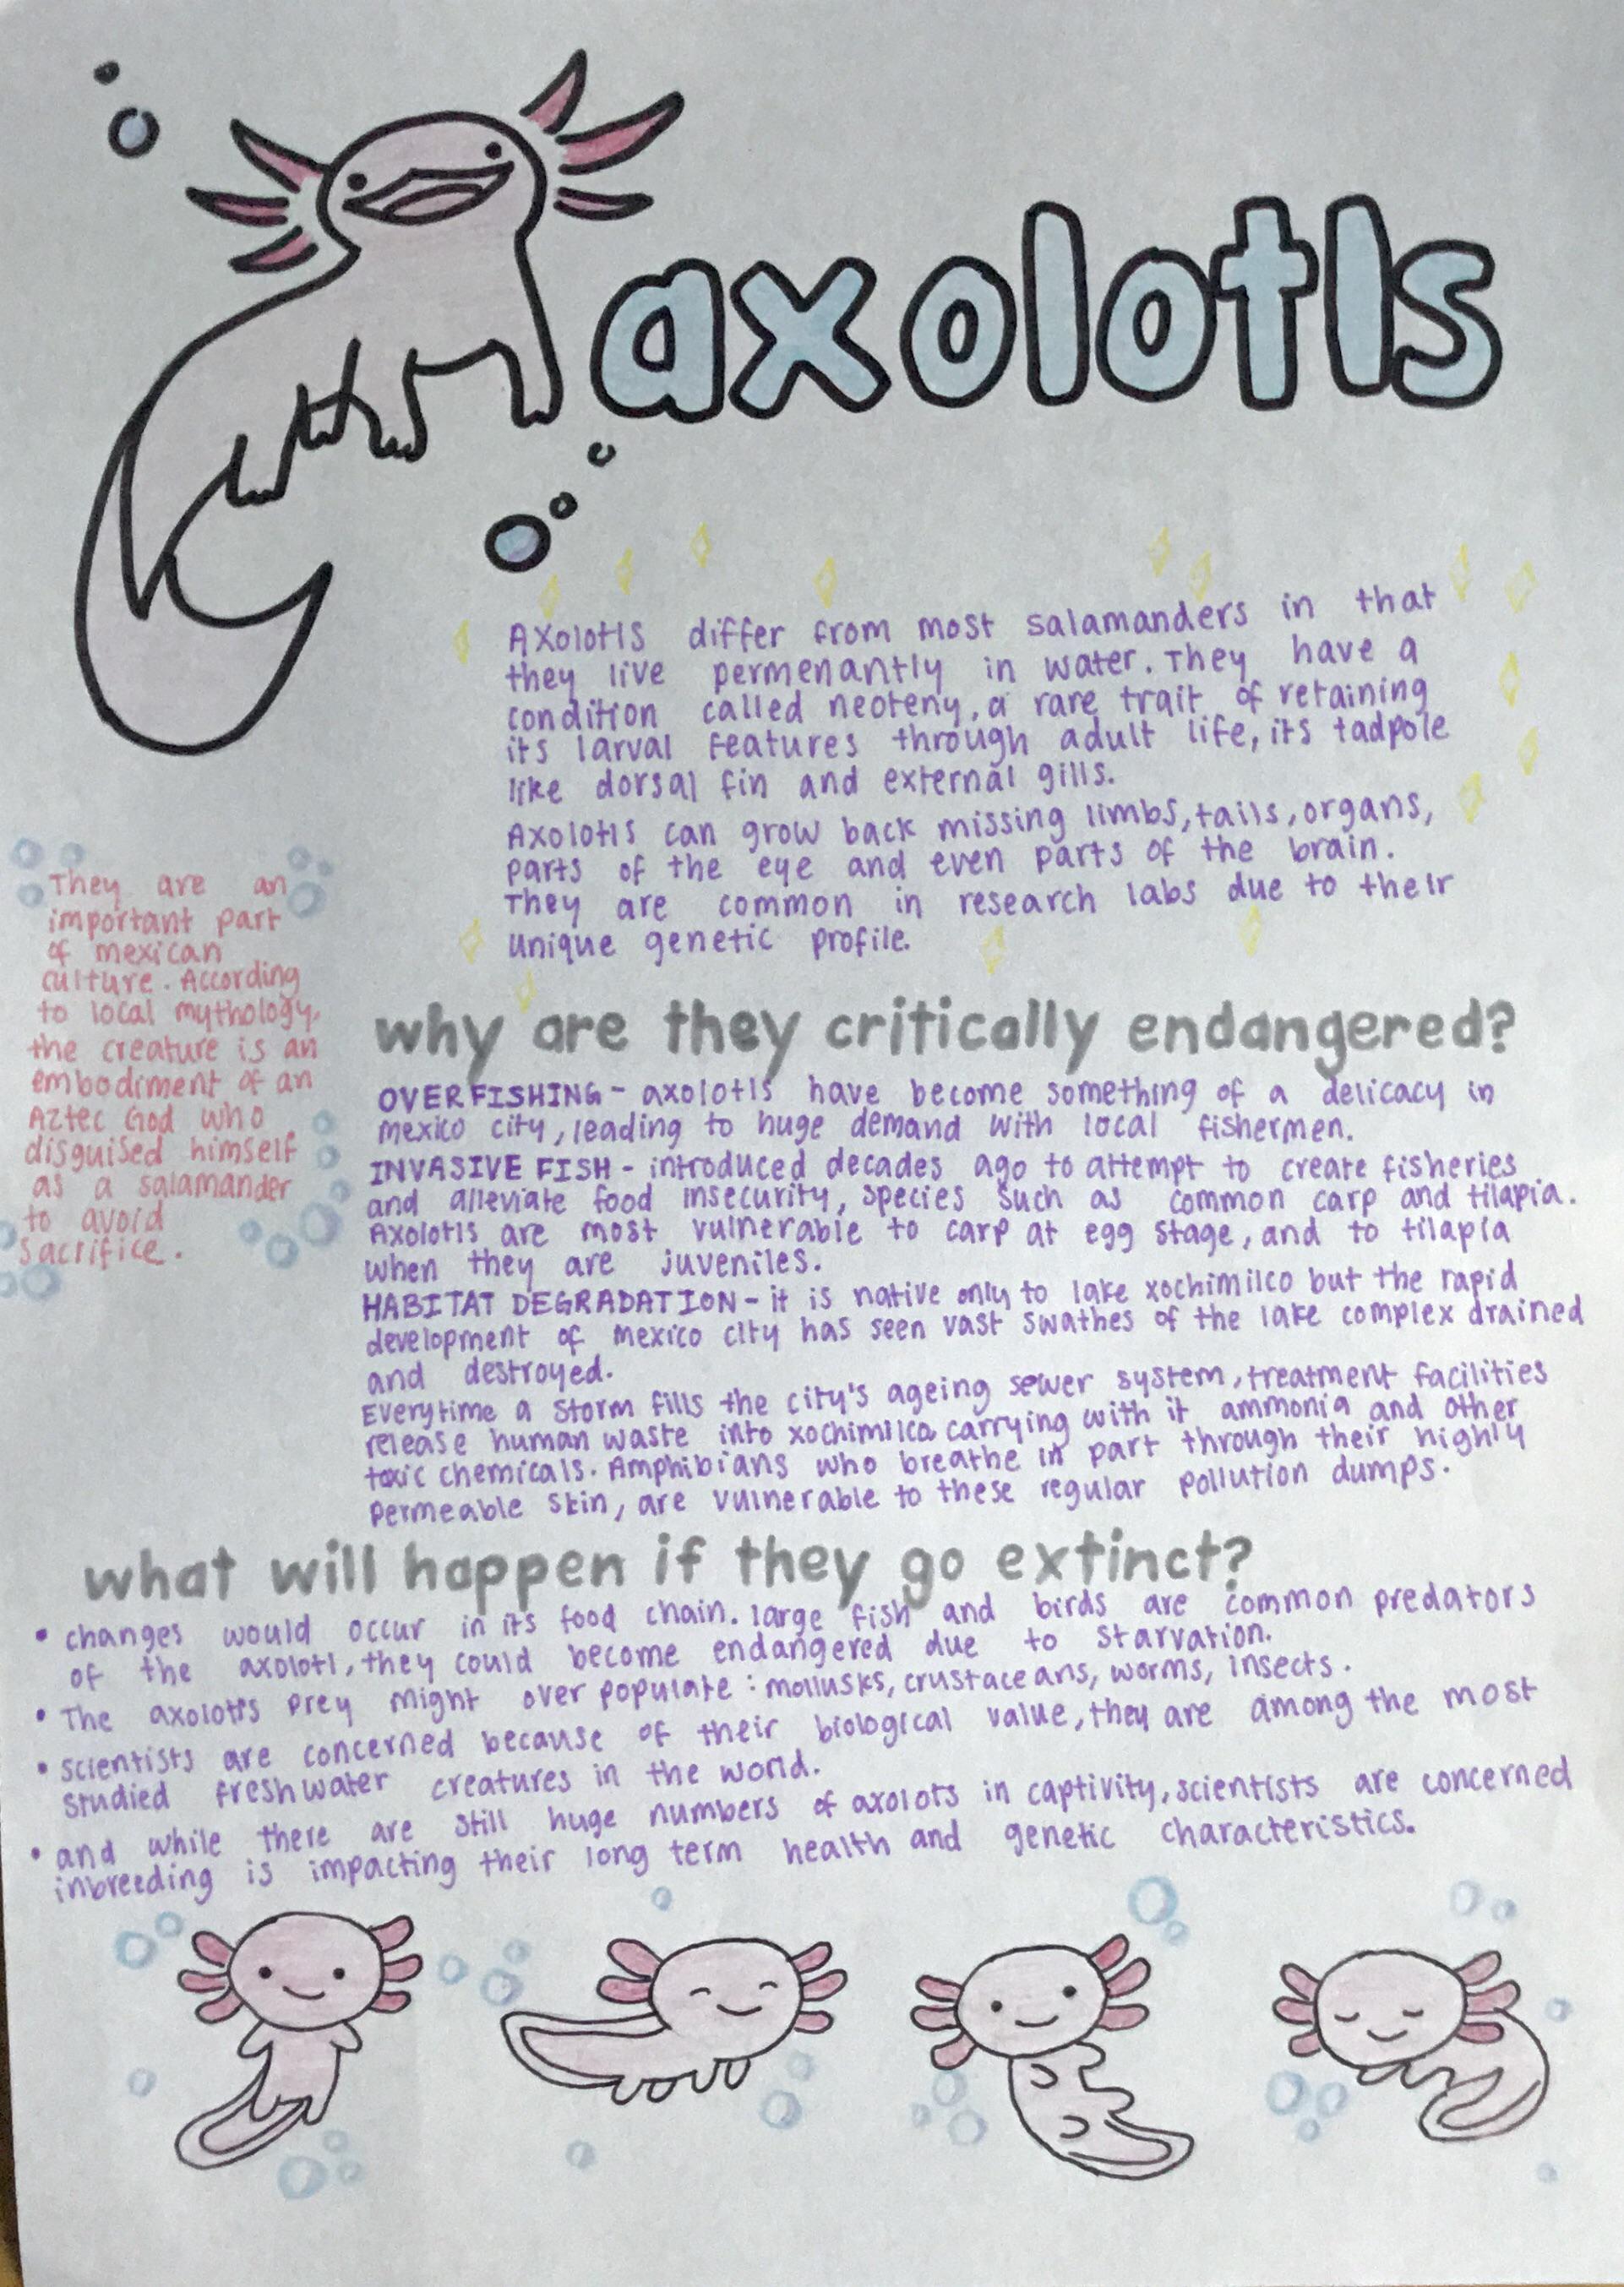 axolotls
Axolotls differ from most salamanders in that
they live permenantly in water. They have a
condition called neoteny, a rare trait of retaining
its larval features through adult life, its tadpole
like dorsal fin and external gills.
Axolotls can grow back missing limbs, tails, organs,
parts of the eye and even parts of the brain.
They are common in research labs due to their
unique genetic profile.
They are an
important part
of mexican
culture. According
to local mythology,
the creature is an
embodiment of an
Aztec God who
disguised himself
as a salamander
to avoid
sacrifice.
why are they critically endangered?
OVERFISHING - axolotls have become something of a delicacy in
mexico city, leading to huge demand with local fishermen.
INVASIVE FISH - introduced decades ago to attempt to create fisheries
and alleviate food insecurity, species such as common carp and tilapia.
Axolotls are most vulnerable to carp at egg stage, and to tilapia
when they are juveniles.
HABITAT DEGRADATION - it is native only to lake xochimilco but the rapid
development of mexico city has seen vast swathes of the lake complex drained
and destroyed.
Everytime a storm fills the city's ageing sewer system, treatment facilities
release human waste into xochimilco carrying with it ammonia and other
toxic chemicals. Amphibians who breathe in part through their highly
permeable skin, are vulnerable to these regular pollution dumps.
what will happen if they go extinct?
• changes would occur in its food chain. large fish and birds are common predators
of the axolotl, they could become endangered due to starvation.
• The axolotl's prey might over populate: mollusks, crustaceans, worms, insects.
• scientists are concerned because of their biological value, they are among the most
studied freshwater creatures in the world.
• and while there are still huge numbers of axolots in captivity, scientists are concerned
inbreeding is impacting their long term health and genetic characteristics.